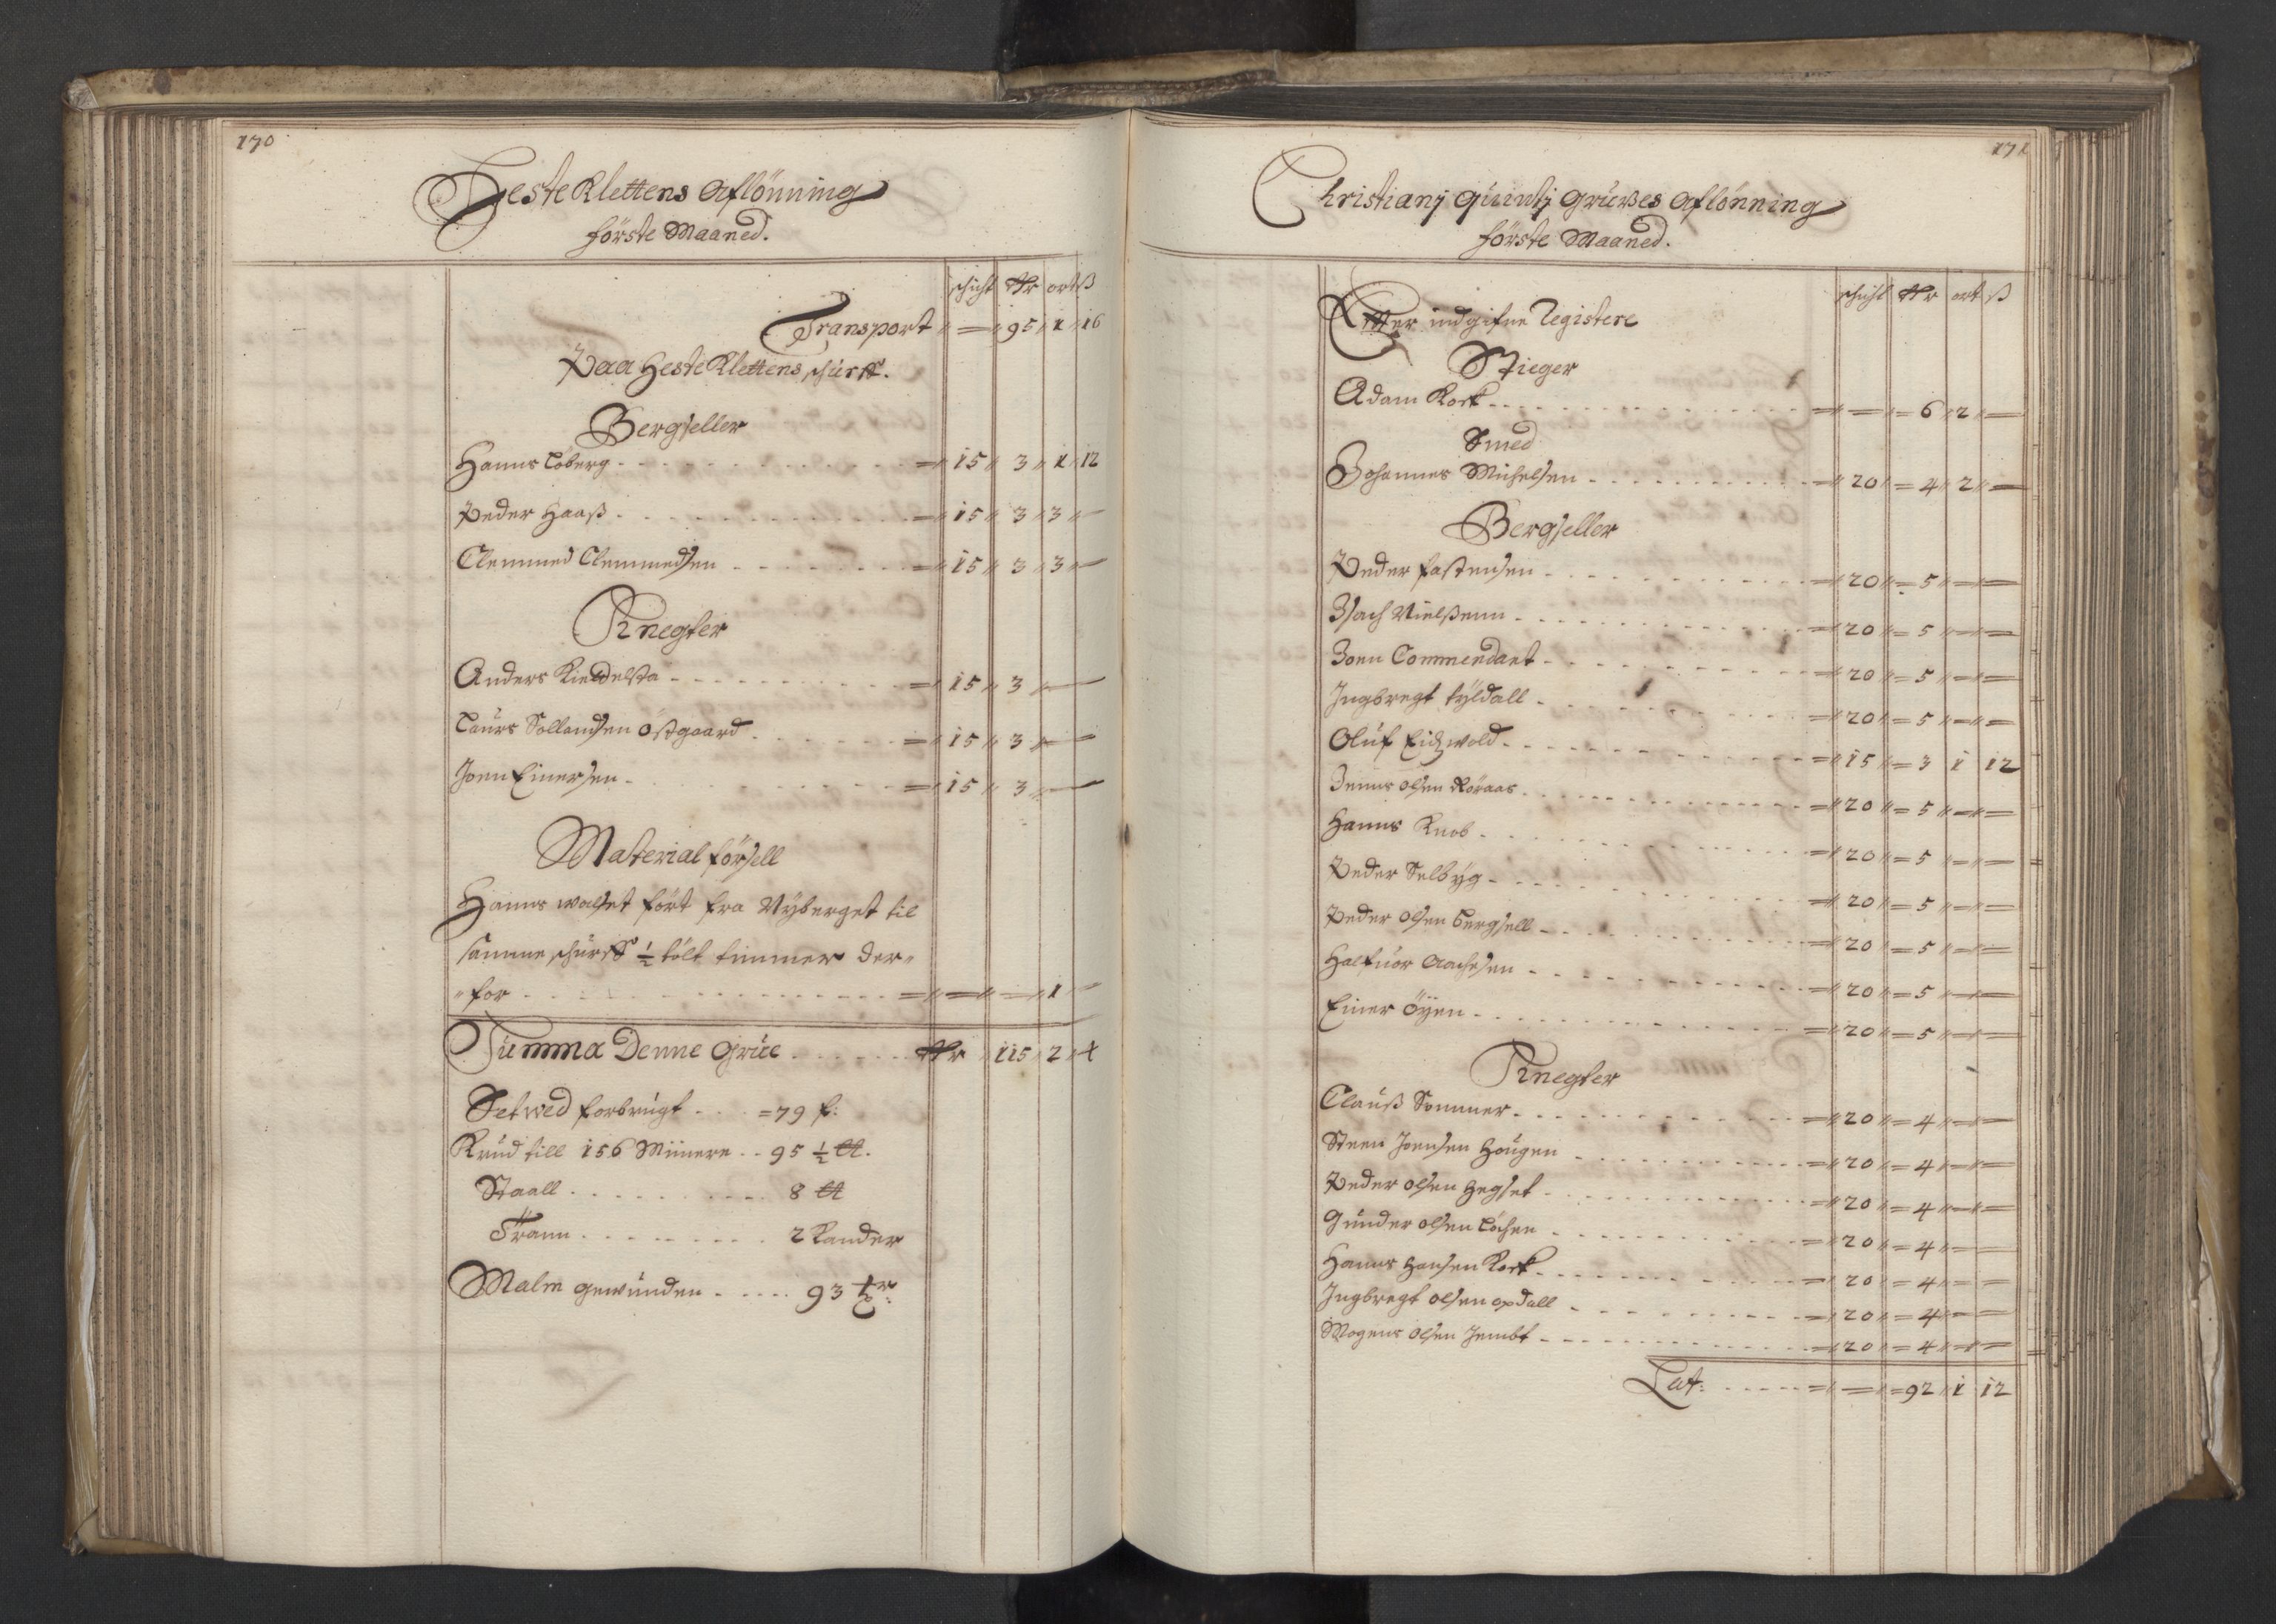 170
HesteKlettens Aflönning
förste Maaned.
schicht Rdr ort ß
Transport 95 1 16
Paa HesteKlettens schurff.
Bergseller
Hanns Löberg 15 3 1 12
Peder Haaß 15 3 3
Clemmed Clemmedsen 15 3 3
Knegter
Anders 15 3
Laurs Östgaard 15 3
Joen Einersen 15 3
Material försell
Hanns walset fört fra Nÿberget til
samme schurff ½ tölt timmer der„
„for 1
Summa Denne Grue Rdr 115 2 4
Setwed forbrugt 79 f:
Krud till 156 Miinere 95 ½ ℔.
Staall 8 ℔
Trann 2 Kander
Malm gewunden 93 tr:
171
Christianj Quintj Gruwes Aflönning
förste Maaned.
schicht Rdr ort ß
Efter indgifne Registere
Stieger
Adam Kork 6 2
Smed
Johannes Michelsen 20 4 2
Bergseller
Peder fastensen 20 5
Isach Nielßenn 20 5
Joen Commendant 20 5
Ingbregt tÿldall 20 5
Oluf Eidzwold 15 3 1 12
Jenns olsen Röraas 20 5
Hanns Knob 20 5
Peder Selbÿg 20 5
Peder olsen bergsell 20 5
Halfuor Aachesen 20 5
Einer öÿen 20 5
Knegter
Clauß Sommer 20 4
Steen Joensen Hougen 20 4
Peder olsen Hegset 20 4
Gunder olsen Löchen 20 4
Hanns Hansen Kork 20 4
Ingbregt olsen opdall 20 4
Mogens olsen Jembt 20 4
Lat: 92 1 12